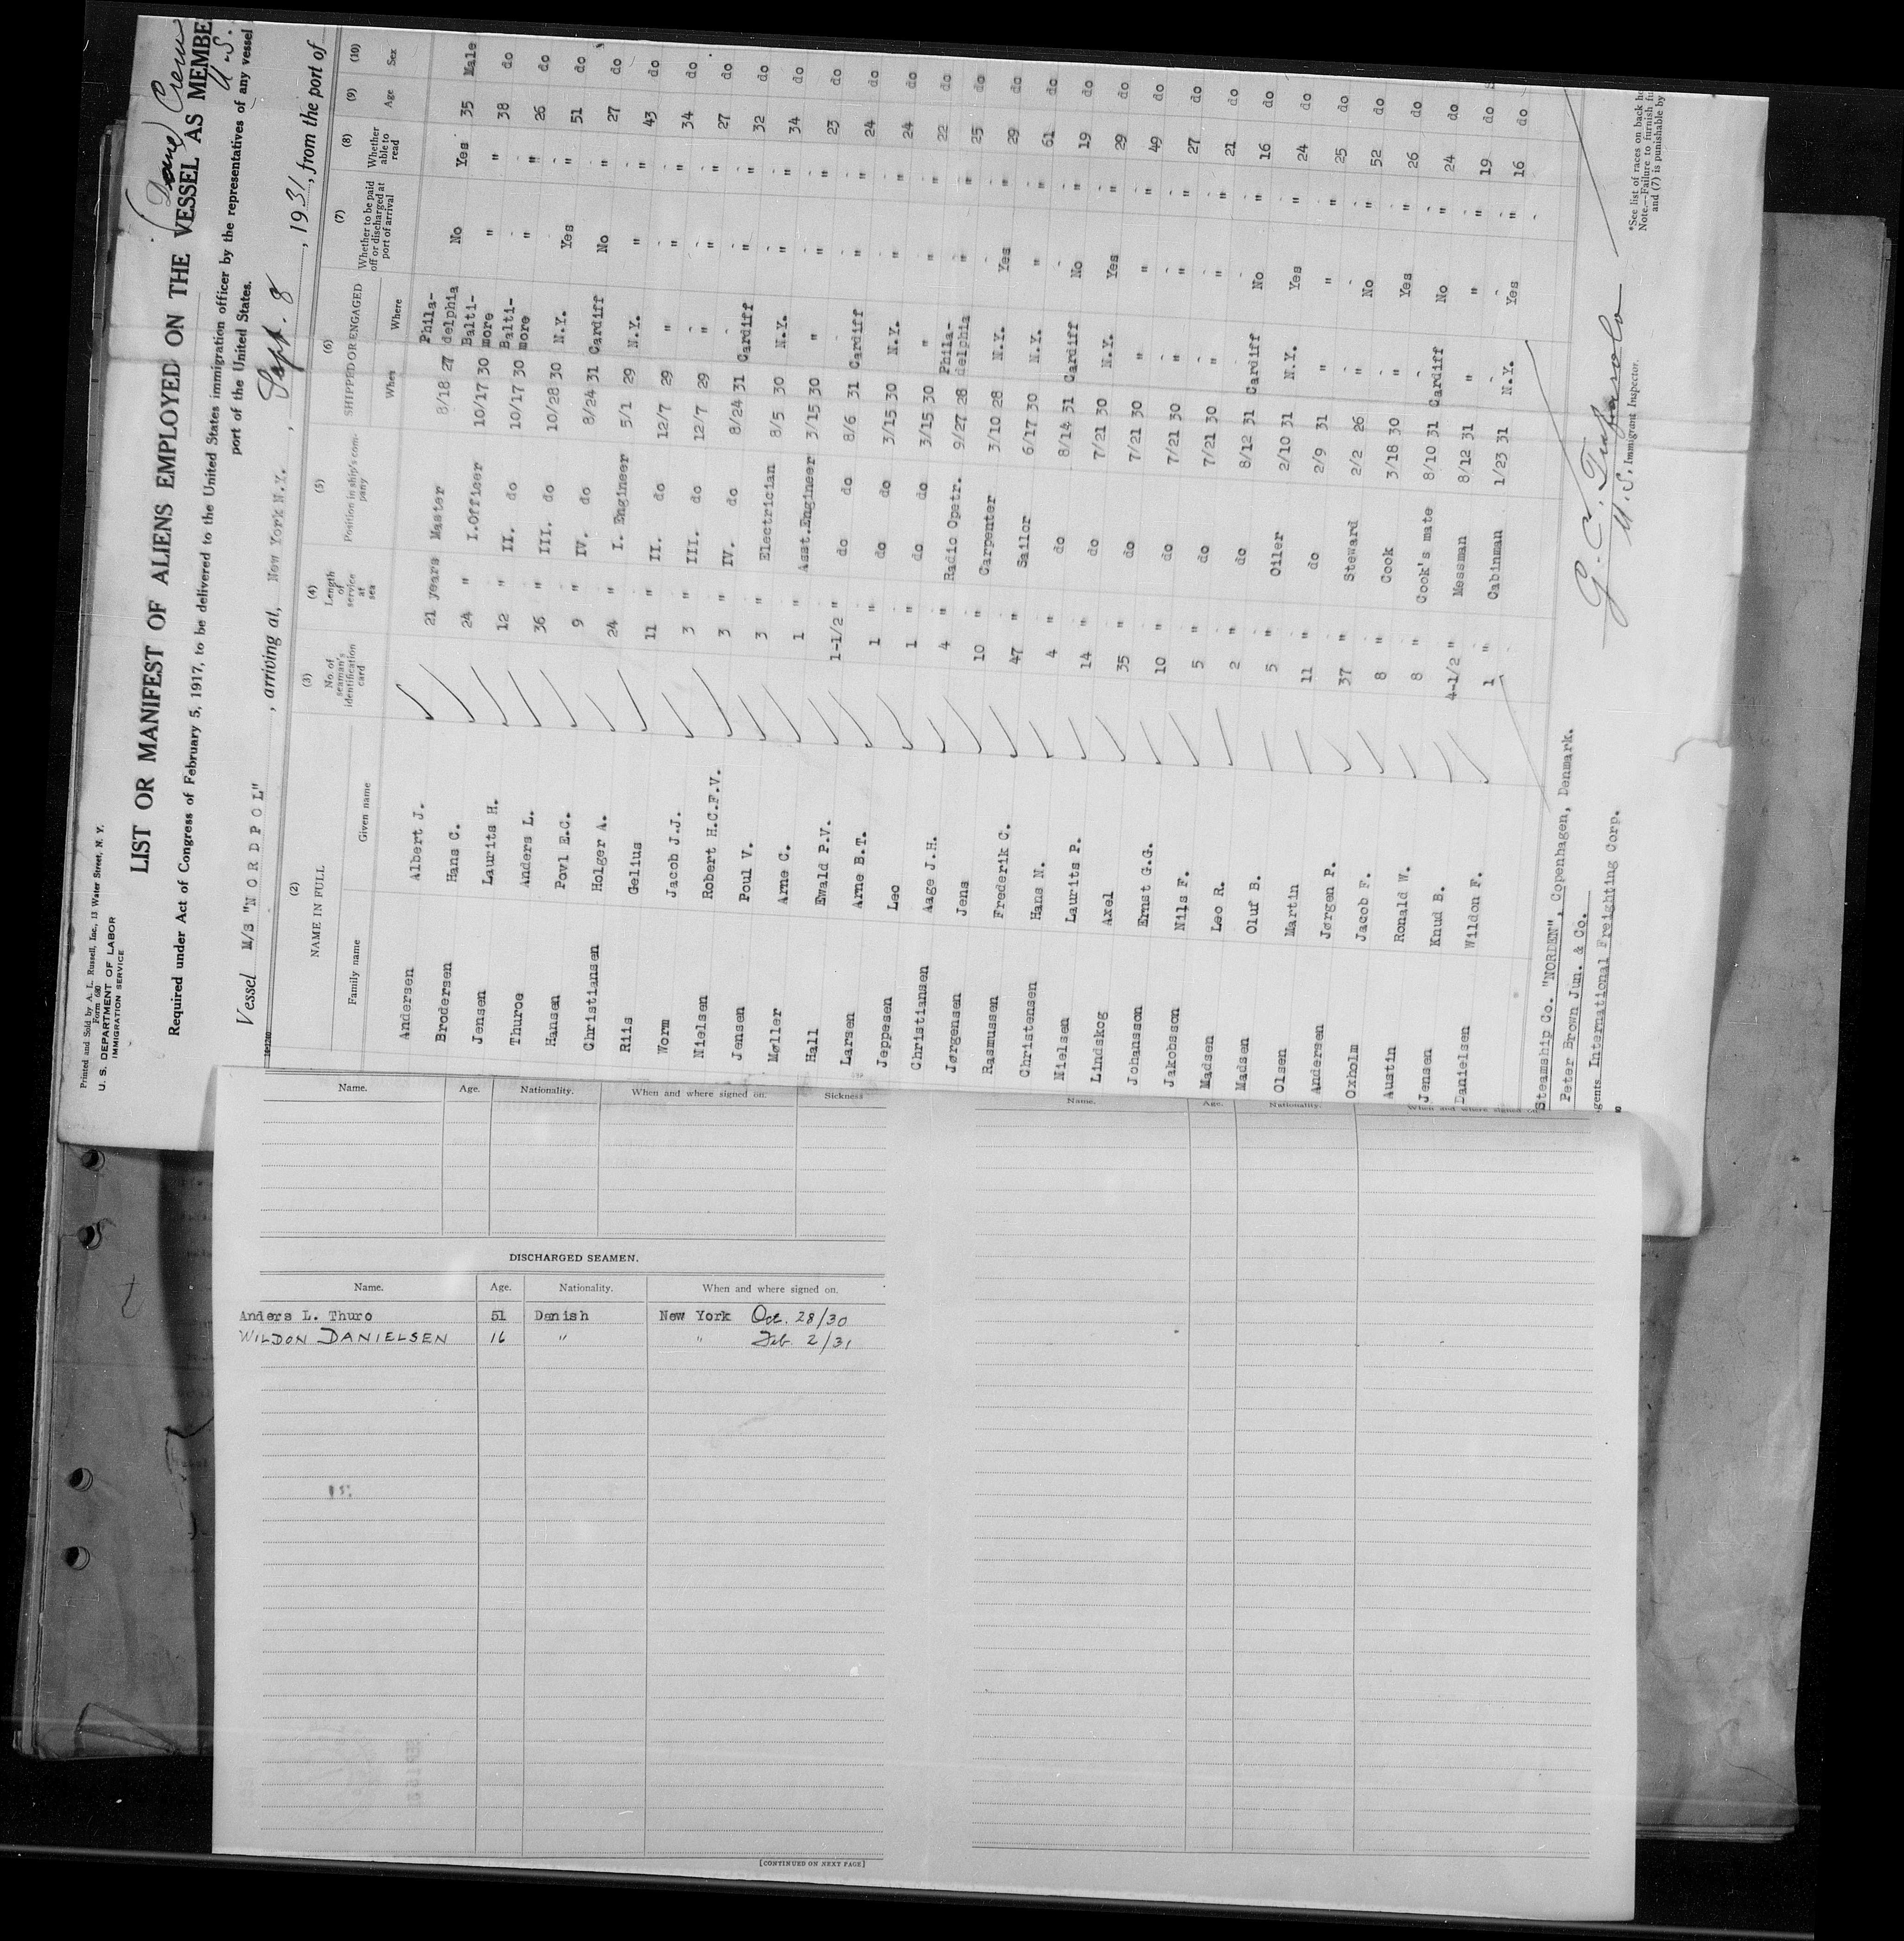 Printed and Sold by A. L. Russell, Inc., 13 Water Street, N. Y.
Form 680
U. S. DEPARTMENT OF LABOR
IMMIGRATION SERVICE
(Dane) Crew
LIST OR MANIFEST OF ALIENS EMPLOYED ON THE VESSEL AS MEMBE
U.S.
Required under Act of Congress of February 5, 1917, to be delivered to the United States immigration officer by the representatives of any vessel
port of the United States.
Vessel M/S "NORDPOL", arriving at, New York N.Y., Sept. 8, 1931, from the port of
(2) (3) (4) (5) (6) (7) (8) (9) (10)
NAME IN FULL No. of seaman's identification card Length of service at sea Position in ship's company SHIPPED OR ENGAGED Whether to be paid off or discharged at port of arrival Whether able to read Age Sex
Family name Given name When Where
Andersen Albert J. 21 years Master 8/18 27 Phila-delphia No Yes 35 Male
Brodersen Hans C. 24 " I.Officer 10/17 30 Balti-more " " 38 do
Jensen Laurits H. 12 " II. do 10/17 30 Balti-more " " 26 do
Thuroe Anders L. 36 " III. do 10/28 30 N.Y. Yes " 51 do
Hansen Povl E.C. 9 " IV. do 8/24 31 Cardiff No " 27 do
Christiansen Holger A. 24 " I. Engineer 5/1 29 N.Y. " " 43 do
Riis Gelius 11 " II. do 12/7 29 " " " 34 do
Worm Jacob J.J. 3 " III. do 12/7 29 " " " 27 do
Nielsen Robert H.C.F.V. 3 " IV. do 8/24 31 Cardiff " " 32 do
Jensen Poul V. 3 " Electrician 8/5 30 N.Y. " " 34 do
Møller Arne C. 1 " Asst.Engineer 3/15 30 " " " 23 do
Hall Ewald P.V. 1-1/2 " do 8/6 31 Cardiff " " 24 do
Larsen Arne B.T. 1 " do 3/15 30 N.Y. " " 24 do
Jeppesen Leo 1 " do 3/15 30 " " " 22 do
Christiansen Aage J.H. 4 " Radio Opetr. 9/27 28 Phila-delphia " " 25 do
Jørgensen Jens 10 " Carpenter 3/10 28 N.Y. Yes " 29 do
Rasmussen Frederik C. 47 " Sailor 6/17 30 N.Y. " " 61 do
Christensen Hans N. 4 " do 8/14 31 Cardiff No " 19 do
Nielsen Laurits P. 14 " do 7/21 30 N.Y. Yes " 29 do
Lindskog Axel 35 " do 7/21 30 " " " 49 do
Johansson Ernst G.G. 10 " do 7/21 30 " " " 27 do
Jakobsson Nils F. 5 " do 7/21 30 " " " 21 do
Madsen Leo R. 2 " do 8/12 31 Cardiff No " 16 do
Madsen Oluf B. 5 " Oiler 2/10 31 N.Y. Yes " 24 do
Olsen Martin 11 " do 2/9 31 " " " 25 do
Andersen Jørgen P. 37 " Steward 2/2 26 " No " 52 do
Oxholm Jacob F. 8 " Cook 3/18 30 " Yes " 26 do
Austin Ronald W. 8 " Cook's mate 8/10 31 Cardiff No " 24 do
Jensen Knud B. 4-1/2 " Messman 8/12 31 " " " 19 do
Danielsen Wildon F. 1 " Cabinman 1/23 31 N.Y. Yes " 16 do
Steamship Co. "NORDEN", Copenhagen, Denmark.
Peter Brown Jun. & Co.
gents International Freighting Corp.
U.S. Immigrant Inspector.
*See list of races on back h
Note.—Failure to furnish fu
and (7) is punishable by
Name. Age. Nationality. When and where signed on. Sickness
Name. Age. Nationality. When and where signed on
DISCHARGED SEAMEN.
Name. Age. Nationality. When and where signed on.
Anders L. Thuro 51 Danish New York Oct. 28/30
WILDON DANIELSEN 16 " " Feb. 2/31
[CONTINUED ON NEXT PAGE]